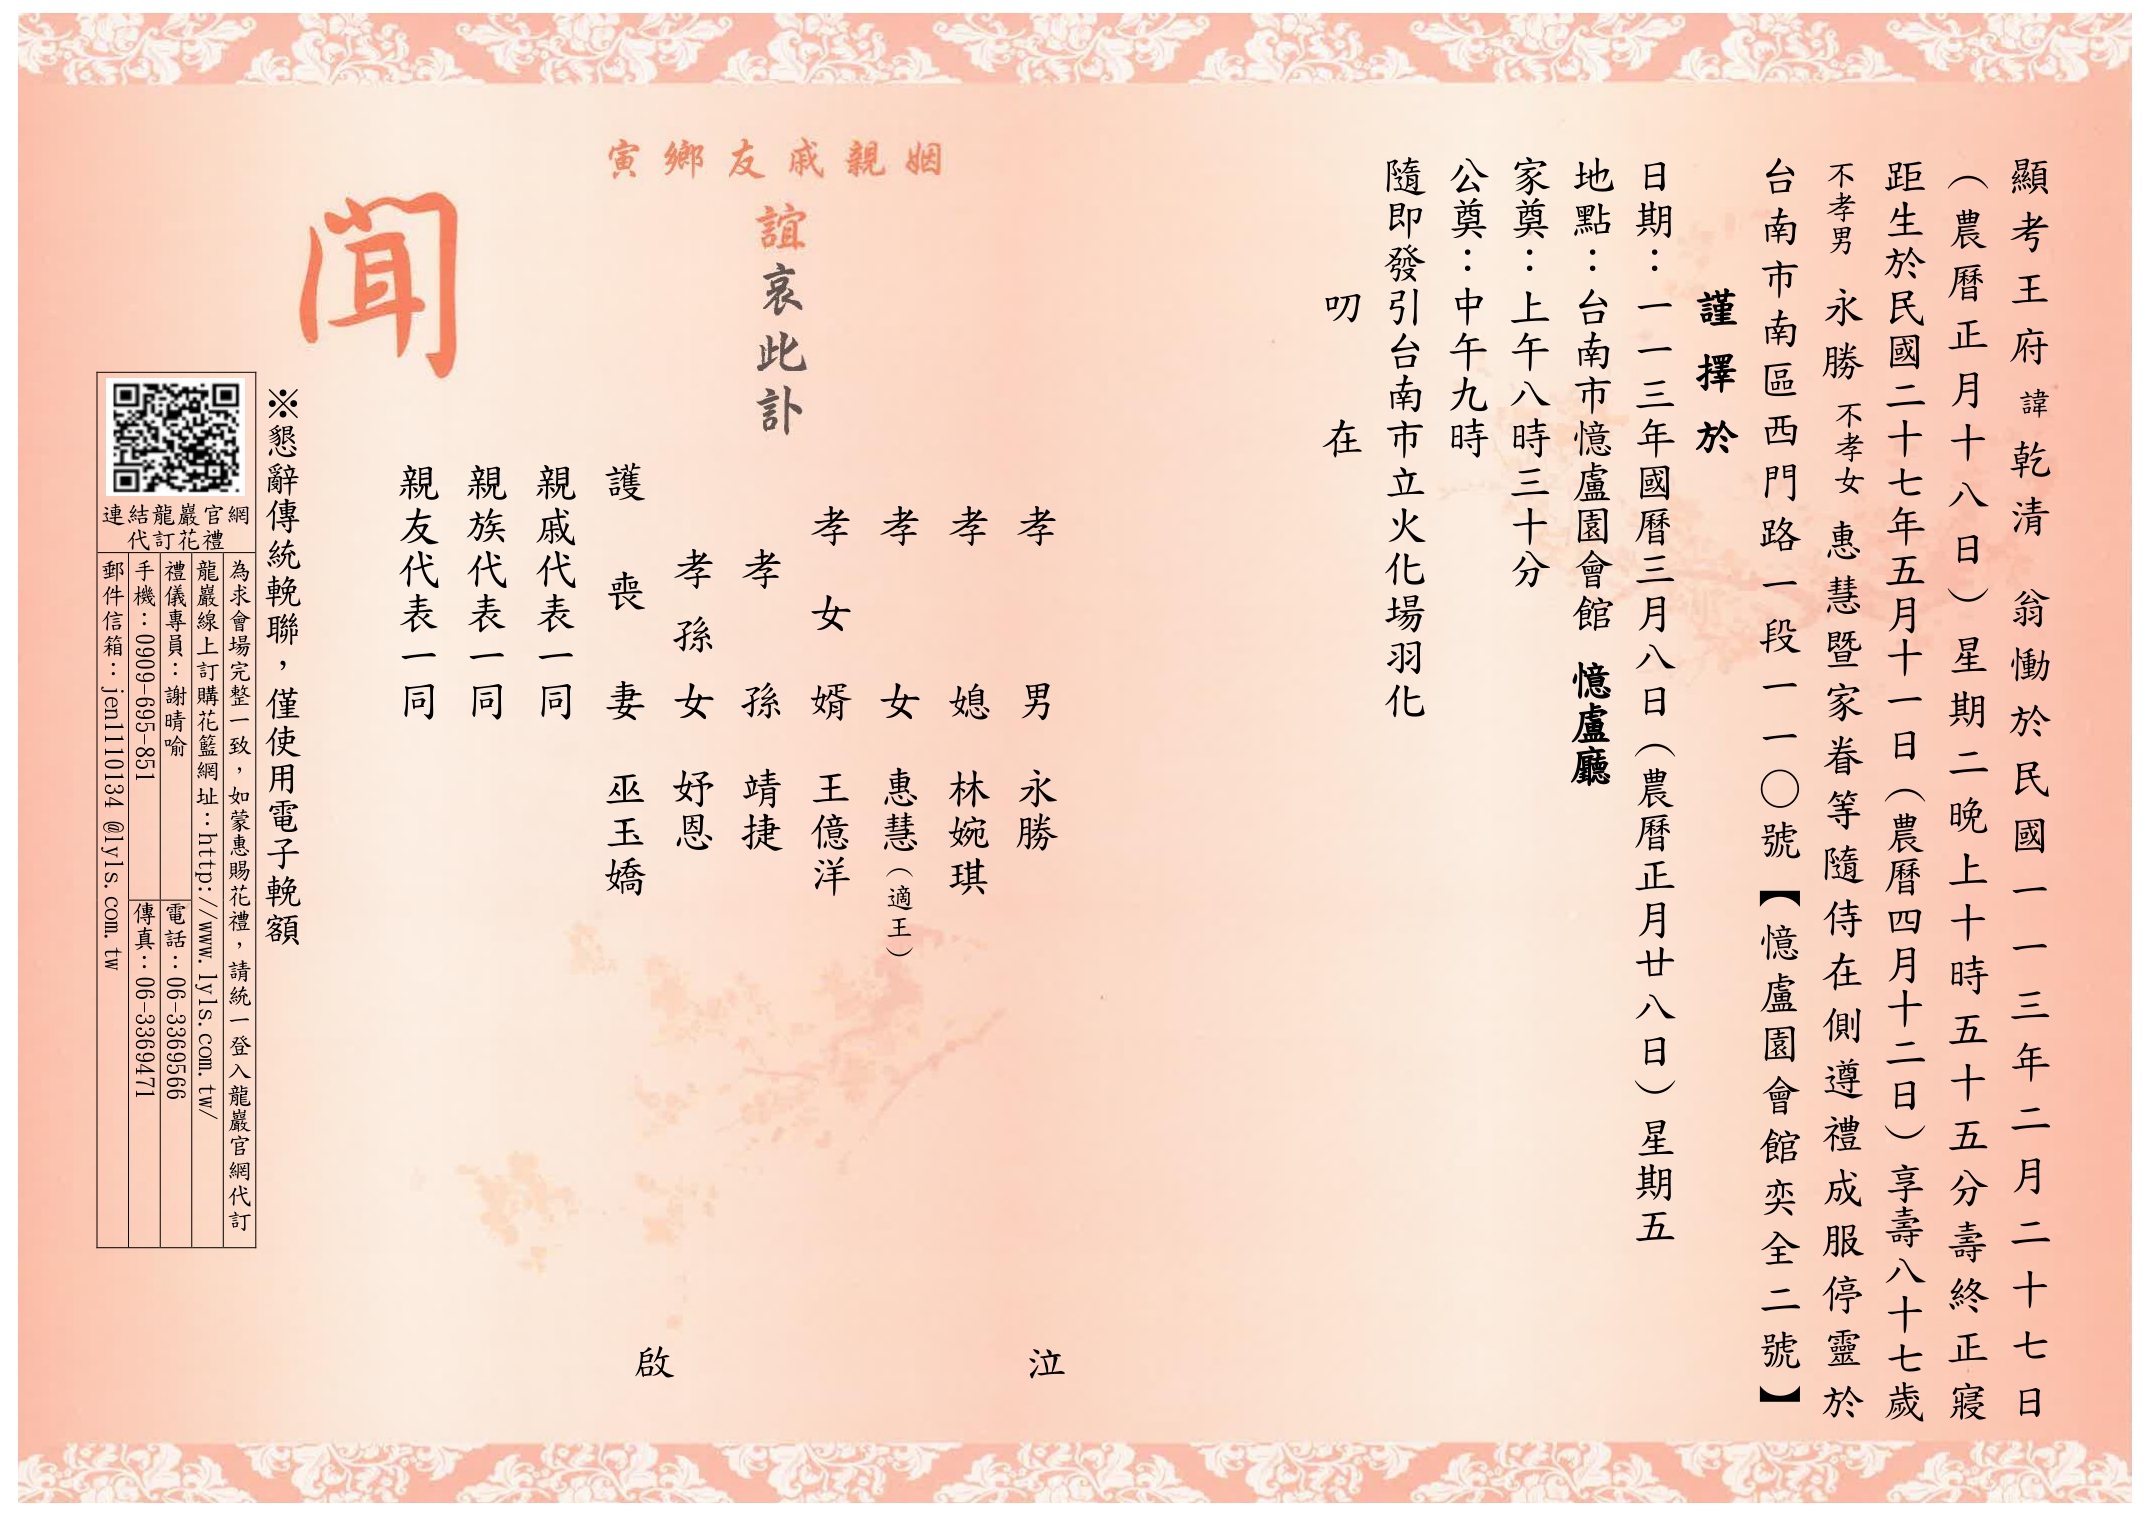 顯考王府諱乾清 翁慟於民國一一三年二月二十七日
（農曆正月十八日）星期二晚上十時五十五分壽終正寢
距生於民國二十七年五月十一日（農曆四月十二日）享壽八十七歲
不孝男 永勝 不孝女 惠慧暨家眷等隨侍在側遵禮成服停靈於
台南市南區西門路一段一一〇號【憶盧園會館奕全二號】
謹擇於
日期：一一三年國曆三月八日（農曆正月廿八日）星期五
地點：台南市憶盧園會館 憶盧廳
家奠：上午八時三十分
公奠：中午九時
隨即發引台南市立火化場羽化
叨 在
姻親戚友鄉寅
誼哀此訃
聞
孝男 永勝 泣
孝媳 林婉琪
孝女 惠慧（適王）
孝女婿 王億洋
孝孫 靖捷
孝孫女 妤恩
護喪妻 巫玉嬌 啟
親戚代表一同
親族代表一同
親友代表一同
※懇辭傳統輓聯，僅使用電子輓額
連結龍巖官網
代訂花禮
為求會場完整一致，如蒙惠賜花禮，請統一登入龍巖官網代訂
龍巖線上訂購花籃網址：http://www.lyls.com.tw/
禮儀專員：謝晴喻
電話：06-3369566
手機：0909-695-851
傳真：06-3369471
郵件信箱：jen1110134 @lyls.com.tw